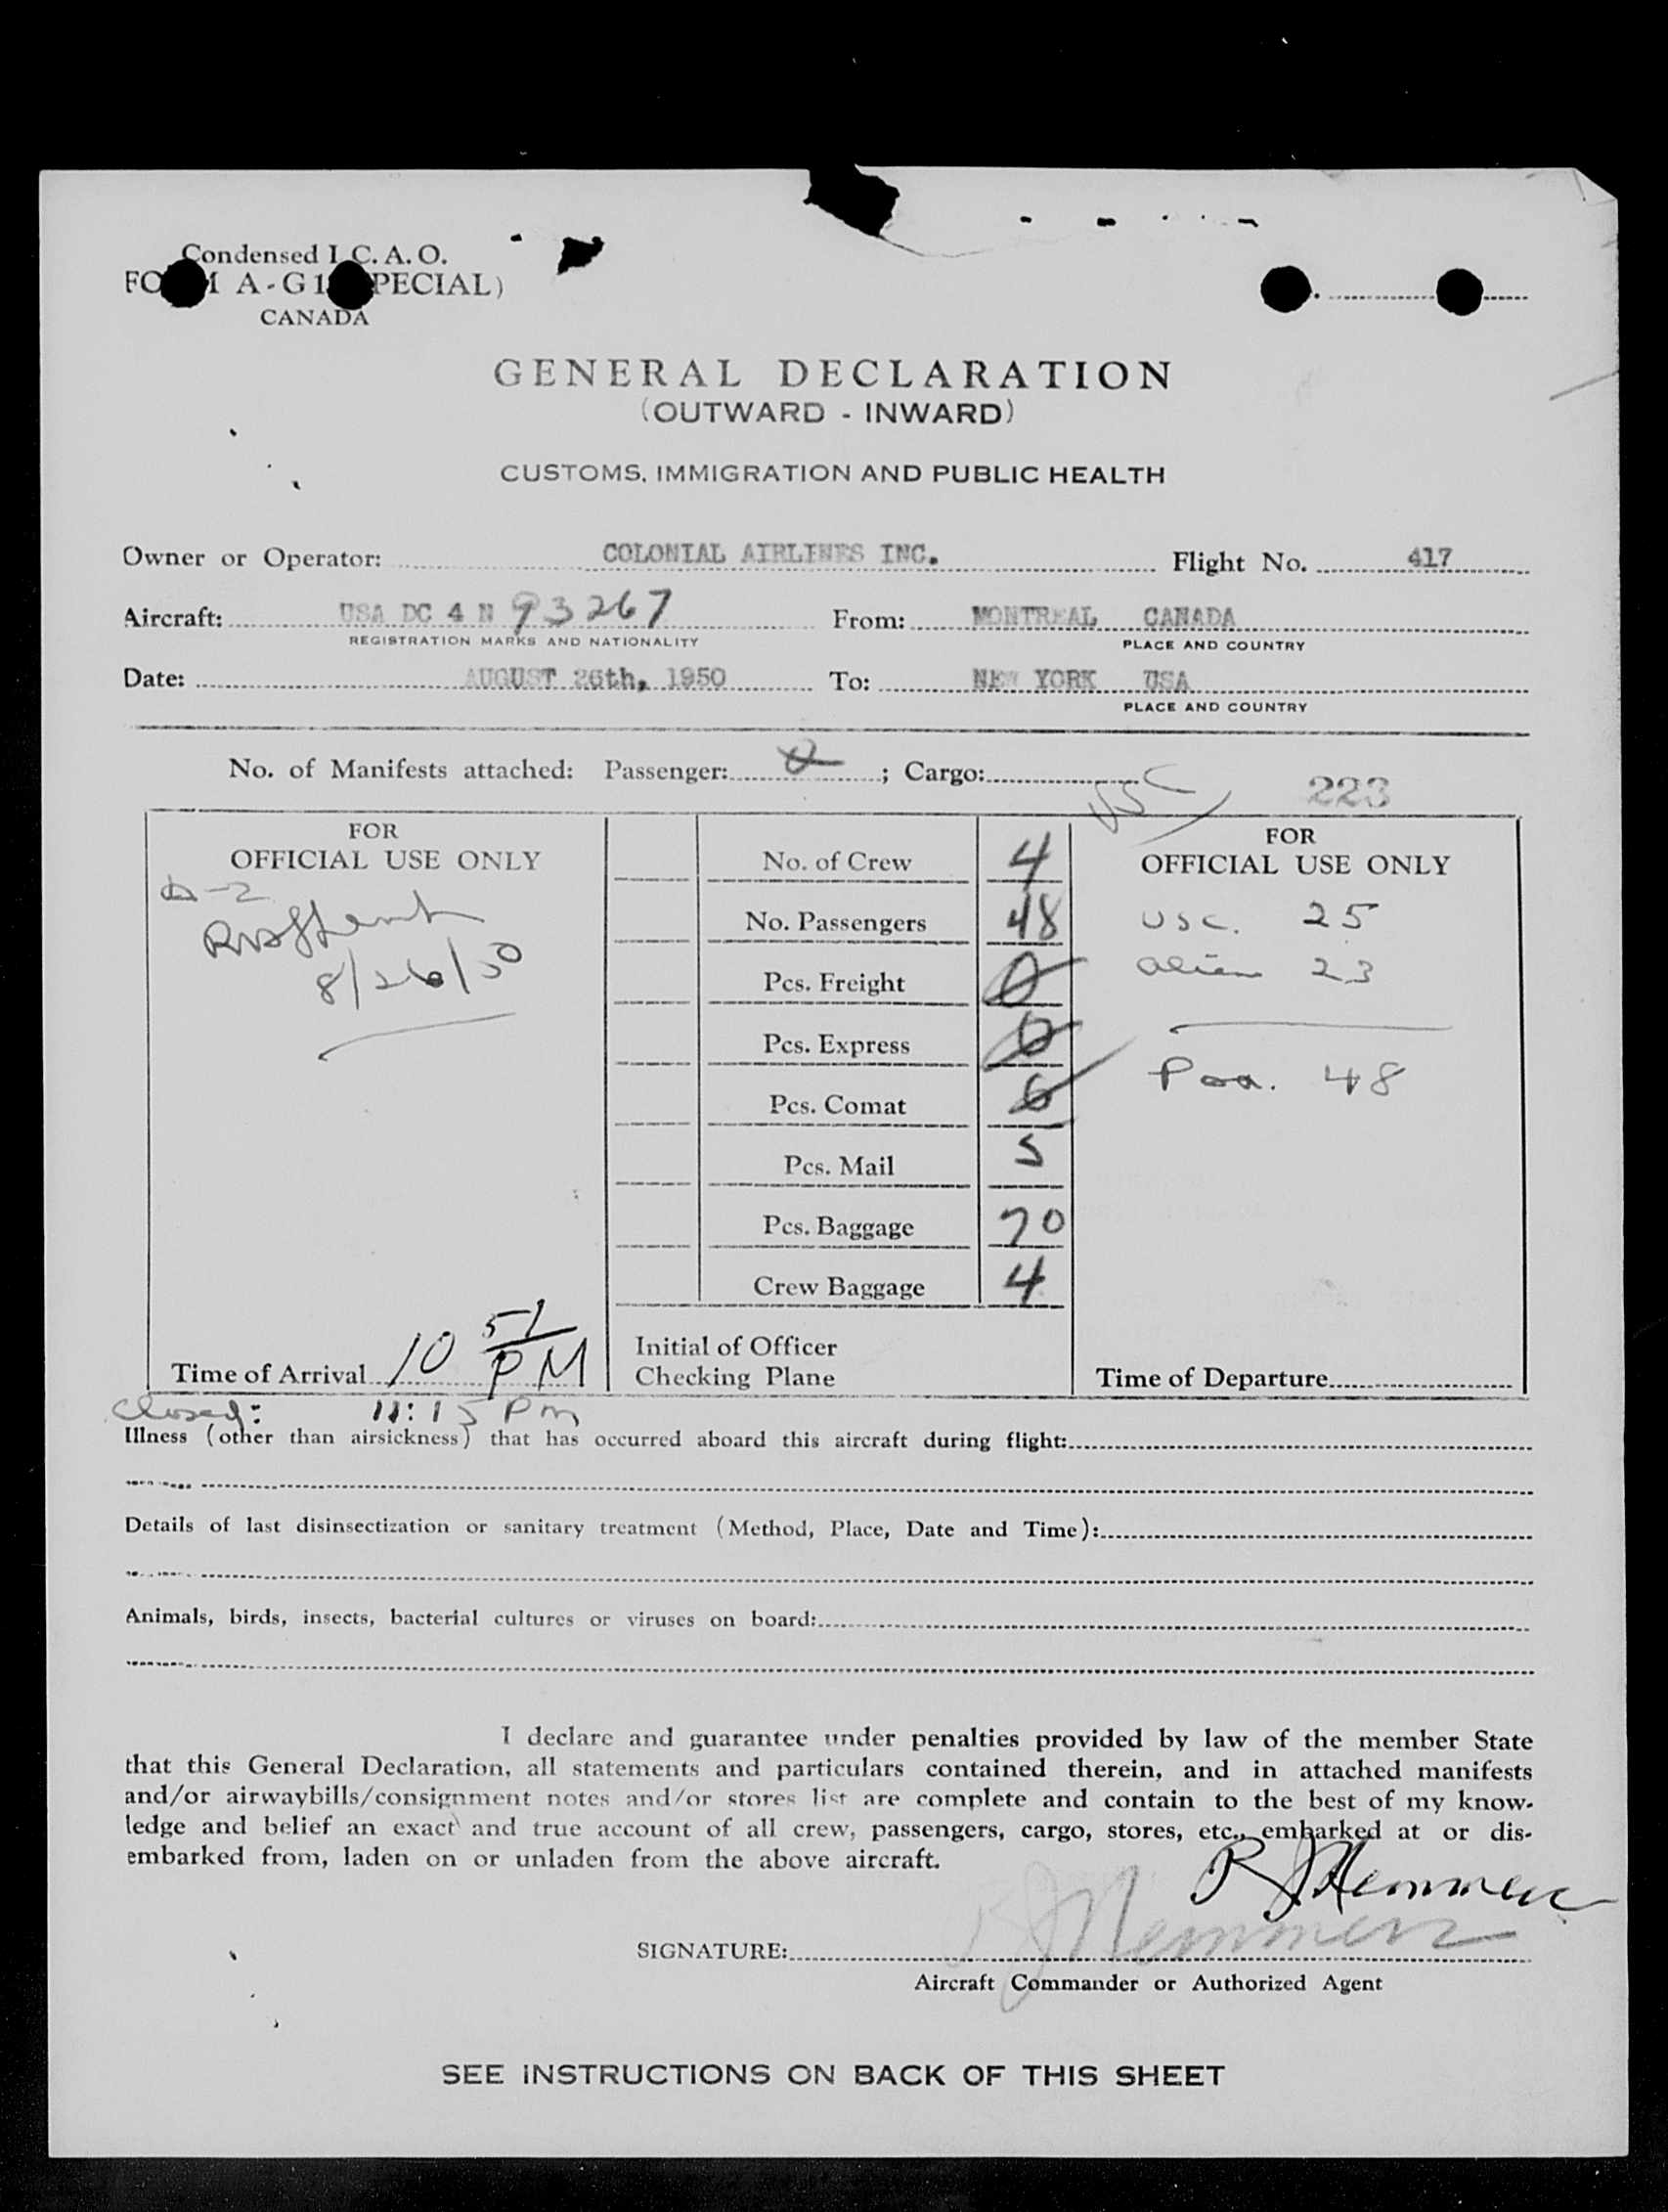 Condensed I.C.A.O.
FORM A-G1 (SPECIAL)
CANADA
GENERAL DECLARATION
(OUTWARD - INWARD)
CUSTOMS, IMMIGRATION AND PUBLIC HEALTH
Owner or Operator: COLONIAL AIRLINES INC. Flight No. 417
Aircraft: USA DC 4 N 93267 From: MONTREAL CANADA
REGISTRATION MARKS AND NATIONALITY PLACE AND COUNTRY
Date: AUGUST 26th, 1950 To: NEW YORK USA
PLACE AND COUNTRY
No. of Manifests attached: Passenger: 0 ; Cargo:
USC 223
FOR
OFFICIAL USE ONLY
D-2
8/26/50
No. of Crew 4
No. Passengers 48
Pcs. Freight 0
Pcs. Express 0
Pcs. Comat
Pcs. Mail 5
Pcs. Baggage 70
Crew Baggage 4
FOR
OFFICIAL USE ONLY
USC. 25
alien 23
Pax. 48
Time of Arrival 10 51 PM
Initial of Officer
Checking Plane
Time of Departure
Closed: 11:15 PM
Illness (other than airsickness) that has occurred aboard this aircraft during flight:
Details of last disinsectization or sanitary treatment (Method, Place, Date and Time):
Animals, birds, insects, bacterial cultures or viruses on board:
I declare and guarantee under penalties provided by law of the member State
that this General Declaration, all statements and particulars contained therein, and in attached manifests
and/or airwaybills/consignment notes and/or stores list are complete and contain to the best of my know-
ledge and belief an exact and true account of all crew, passengers, cargo, stores, etc., embarked at or dis-
embarked from, laden on or unladen from the above aircraft.
SIGNATURE:
Aircraft Commander or Authorized Agent
SEE INSTRUCTIONS ON BACK OF THIS SHEET